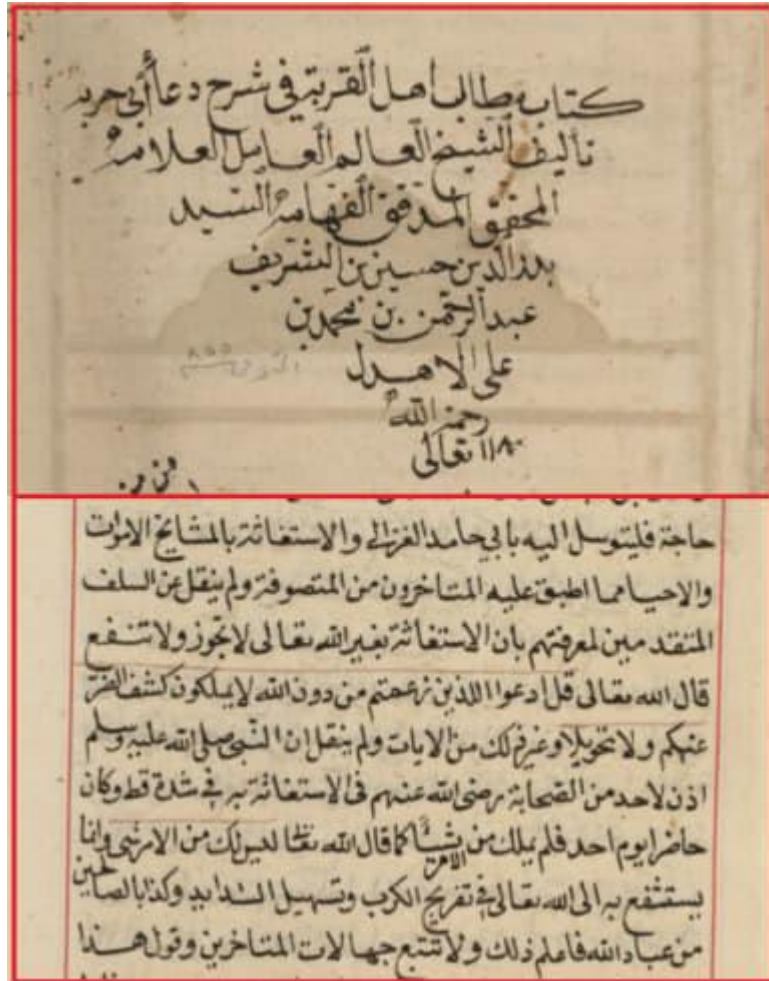 كتاب مطالب اهل القربة في شرح دعاء أبي حربه
تأليف الشيخ العالم العامل العلامة
المحقق المدقق الفهامة السيد
بدر الدين حسين بن الشريف
عبد الرحمن بن محمد بن
علي الاهدل
رحمه الله
تعالى
٨٥٥
حاجة فليتوسل اليه بابي حامد الغزالي والاستغاثة بالمشايخ الاموات
والاحيا مما اطبق عليه المتاخرون من المتصوفة ولم ينقل عن السلف
المتقدمين لمعرفتهم بان الاستغاثة بغير الله تعالى لا تجوز ولا تنفع
قال الله تعالى قل ادعوا اللذين زعمتم من دون الله لا يملكون كشف الضر
عنكم ولا تحويلا وغير ذلك من الايات ولم ينقل ان النبي صلى الله عليه وسلم
اذن لاحد من الصحابة رضي الله عنهم في الاستغاثة به في شدة قط وكان
حاضرا يوم احد فلم يملك من الامر شيئا كما قال الله تعالى ليس لك من الامر شي وانما
يستشفع به الى الله تعالى في تفريج الكرب وتسهيل الشدايد وكذا بالصالحين
من عباد الله فاعلم ذلك ولا تتبع جهالات المتاخرين وقول هذا